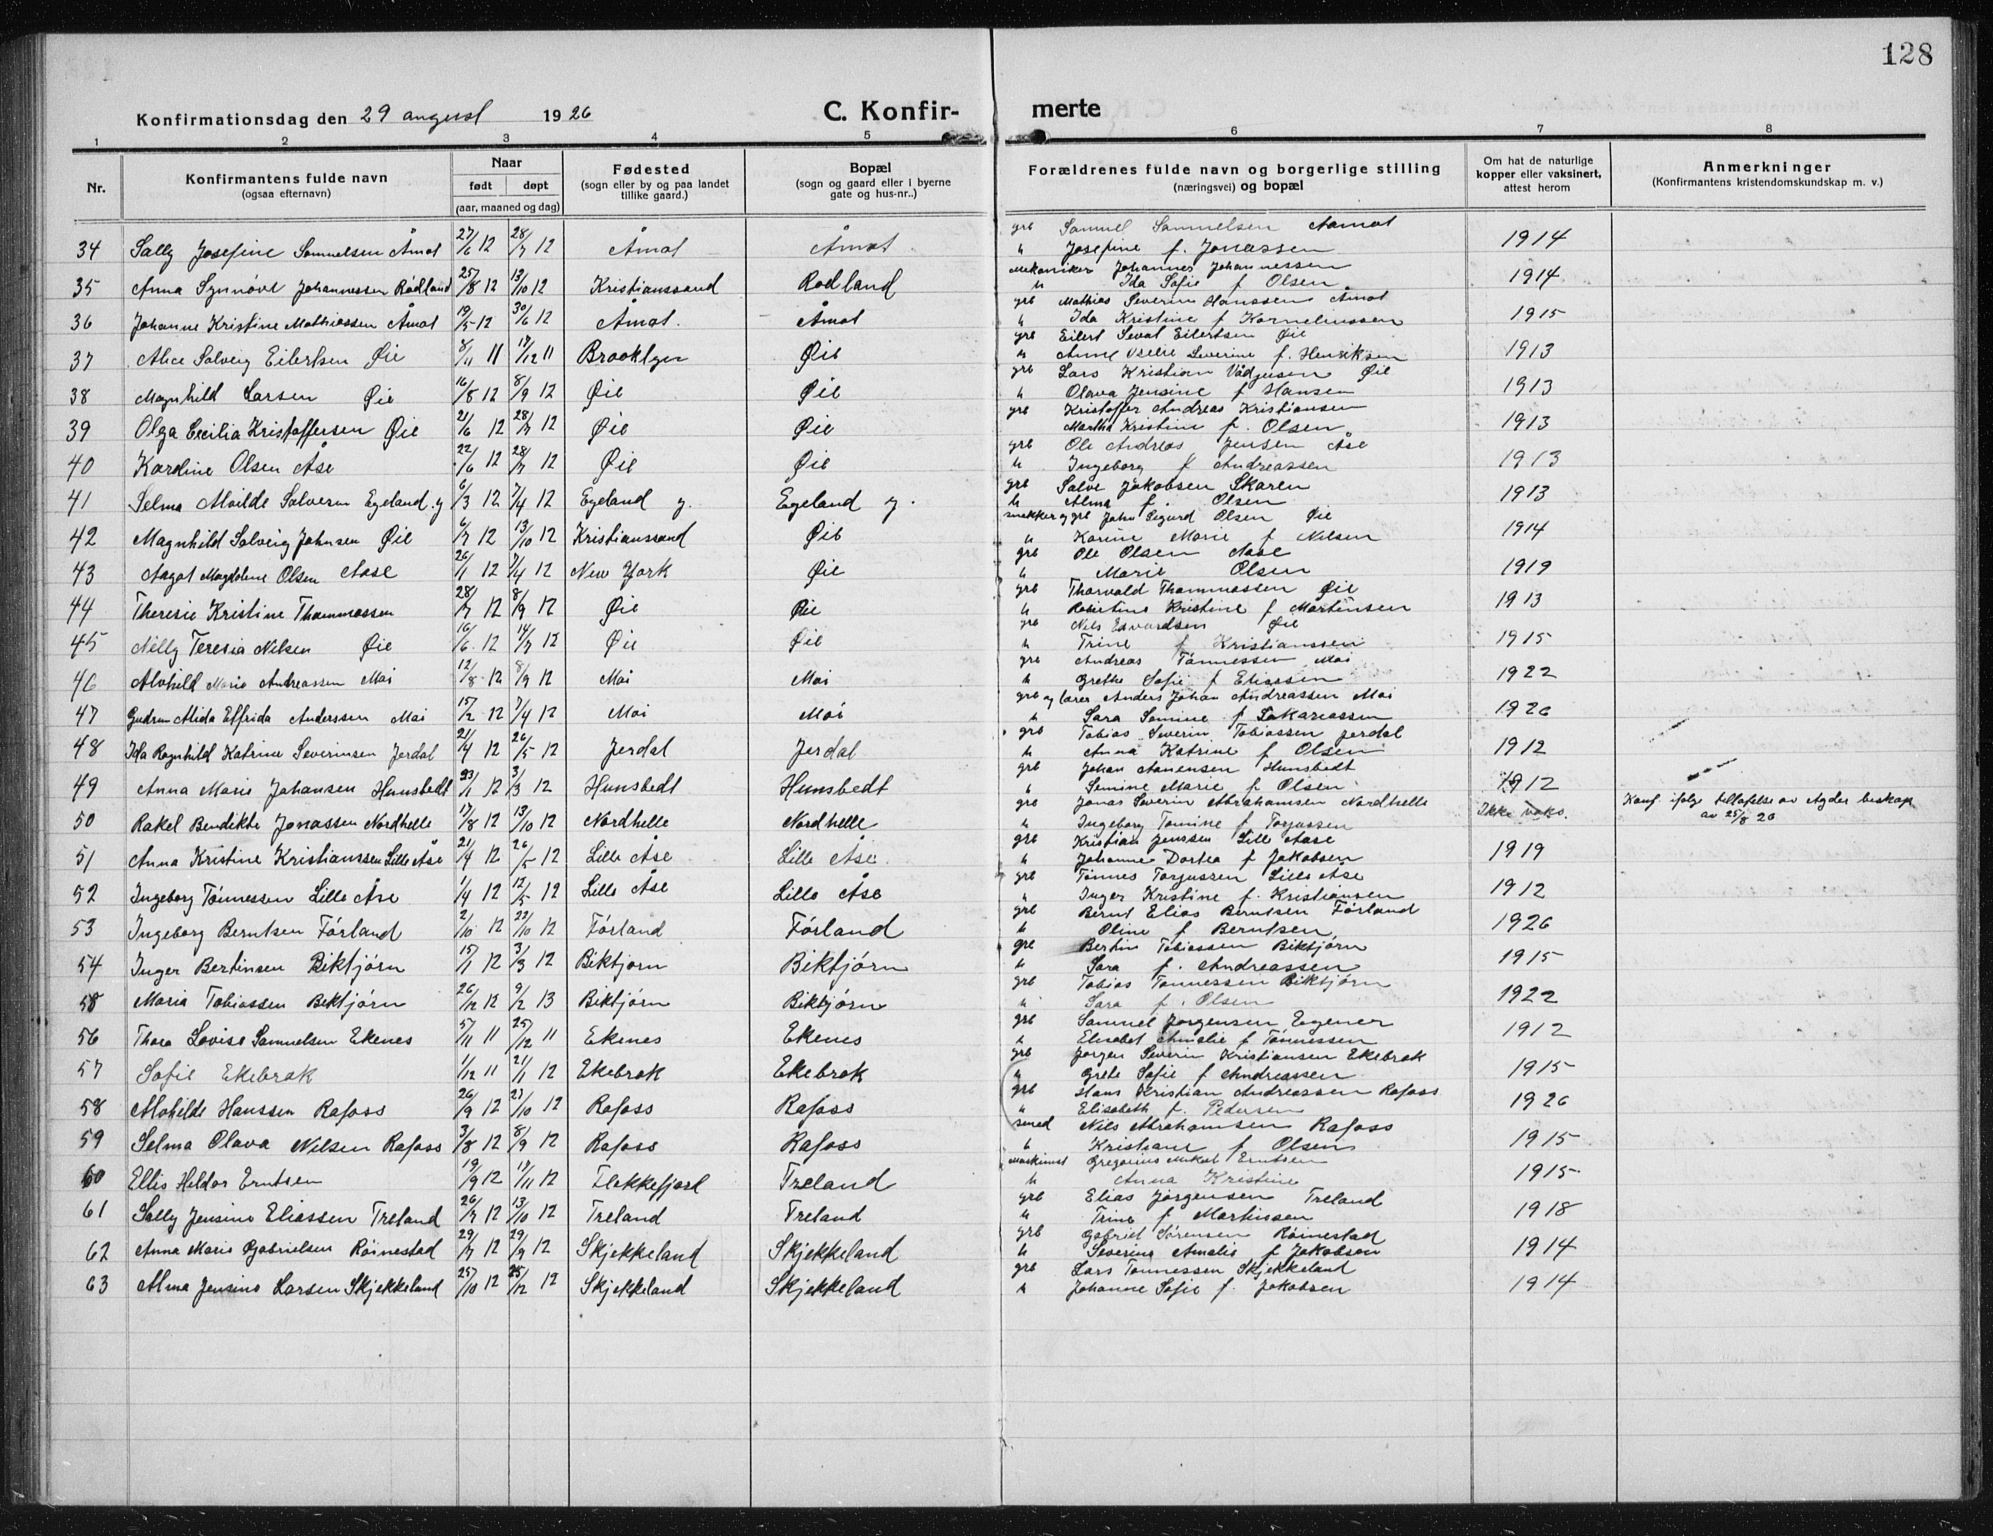 128
Konfirmationsdag den 29 august 1926
C. Konfir-merte
1 2 3 4 5 6 7 8
Nr.
Konfirmantens fulde navn
(ogsaa efternavn)
Naar
født døpt
(aar, maaned og dag)
Fødested
(sogn eller by og paa landet
tillike gaard.)
Bopæl
(sogn og gaard eller i byerne
gate og hus-nr..)
Forældrenes fulde navn og borgerlige stilling
(næringsvei) og bopæl
Om hat de naturlige
kopper eller vaksinert,
attest herom
Anmerkninger
(Konfirmantens kristendomskundskap m. v.)
34 Sally Josefine Samuelsen Åmot 27/6 12 28/7 12 Åmot Åmot grb Samuel Samuelsen Aamot 1914
" Josefine f. Jonassen
35 Anna Synnøve Johannessen Rødland 25/8 12 13/10 12 Kristianssand Rødland Mekaniker Johannes Johannessen 1914
" Ida Sofie f Olsen
36 Johanne Kristine Mathiassen Åmot 19/5 12 30/6 12 Åmot. Åmot grb Mathias Severin Hanssen Åmot 1915
" Ida Kristine f Korneliussen
37 Alice Solveig Eilertsen Øie 8/11 11 17/12 11 Brooklyn Øie grb Eilert Seval Eilertsen Øie 1913
" Anne Severine f. Henriksen
38 Magnhild Larsen Øie 16/8 12 8/9 12 Øie Øie grb Lars Kristian Øie 1913
" Olava Jensine f Hansen
39 Olga Cecilia Kristoffersen Øie 21/6 12 28/7 12 Øie Øie grb Kristoffer Andreas Kristiansen 1913
Martha Kristine f. Olsen
40 Kardine Olsen Åse 22/6 12 28/7 12 Øie Øie grb Ole Andreas Jensen Åse 1913
" Ingeborg f Andreassen
41 Selma Moilde Salvesen Egeland. y 6/3 12 7/4 12 Egeland y. Egeland y. grb Salve Jakobsen Skaren 1913
" Alma f. Olsen
42 Magnhild Solveig Johnsen Øie 6/7 12 13/10 12 Kristianssand Øie snekker og grb John Sigurd Olsen Øie 1914
" Karine Marie f Nilsen
43 Aagot Magdalene Olsen Aase 26/1 12 7/4 12 New York Øie grb Ole Olsen Aase 1919
" Marie Olsen
44 Theresie Kristine Thommassen 28/7 12 8/9 12 Øie Øie grb Thorvald Thommassen Øie 1913
" Kristine f Martinsen
45 Nelly Teresia Nilsen Øie 16/6 12 14/7 12 Øie Øie grb Nils Edvardsen Øie 1915
" Trine f Kristianssen
46 Alvhild Marie Andreassen Moi 12/8 12 8/9 12 Moi Moi grb Andreas Tönnessen Moi 1922
" Grethe Sofie f Eliassen
47 Gudrun Alida Elfrida Anderssen Moi 15/2 12 7/4 12 Moi Moi grb og lærer Anders Johan Andreassen Moi 1926
" Sara Semine f Sakariassen
48 Ida Ragnhild Katrine Severinsen Jerdal 21/4 12 26/5 12 Jerdal Jerdal grb Tobias Severin Tobiassen Jerdal 1912
" Anna Katrine f Olsen
49 Anna Marie Johansen Hunsbedt 23/1 12 3/3 12 Hunsbedt Hunsbedt grb Johan Aanensen Hunsbedt 1912
" Semine Marie f Olsen
50 Rakel Bendikte Jonassen Nordhelle 17/8 12 13/10 12 Nordhelle Nordhelle grb Jonas Severin Abrahamsen Nordhelle Ikke vaks. Konf. ifølge tillatelse av Agder biskop
" Ingeborg Tomine f Torjussen av 25/8 26
51 Anna Kristine Kristianssen Lille Åse 21/4 12 26/5 12 Lille Åse Lille Åse. grb Kristian Jenssen Lille Aase 1919
" Johanne Dortea f Jakobsen
52 Ingeborg Tönnessen Lille Åse 1/4 12 12/5 12 Lille Åse Lille Åse grb Tönnes Torjussen Lille Åse 1912
" Inger Kristine f. Kristiansen
53 Ingeborg Berntsen Förland 2/10 12 22/10 12 Förland Förland grb Bernt Elias Berntsen Förland 1926
" Oline f Berntsen
54 Inger Bertinsen Biktjörn 15/1 12 3/3 12 Biktjorn Biktjörn grb Bertin Tobiassen Biktjörn 1915
" Sara f. Andreassen
58 Maria Tobiassen Biktjörn 26/12 12 9/2 13 Biktjörn Biktjörn grb Tobias Tönnessen Biktjörn 1922
" Sara f. Olsen
56 Thora Lovise Samuelsen Ekenes 5/11 11 25/12 11 Ekenes Ekenes grb Samuel Jørgensen Egenes 1912
" Elisabet Amalie f Tönnessen
57 Sofie Ekebrok 1/12 11 21/1 12 Ekebrok Ekebrok grb Jørgen Severin Kristiansen Ekebrok 1915
" Grete Sofie f Andreassen
58 Alvhilde Hanssen Rafoss 26/9 12 27/10 12 Rafoss Rafoss grb Hans Kristian Andreassen Rafoss 1926
" Elisabeth f. Pedersen
59 Selma Olava Nilsen Rafoss 3/8 12 8/9 12 Rafoss Rafoss smed Nils Abrahamsen Rafoss 1915
" Kristiane f Olsen
60 Ellis Hildor Erntsen 19/9 12 17/11 12 Flekkefjord Treland Maskinist Gregorius Mikal Erntsen 1915
" Anna Kristine
61 Sally Jensine Eliassen Treland 26/7 12 13/10 12 Treland Treland grb Elias Jørgensen Treland 1918
" Trine f Martinsen
62 Anna Marie Gabrielsen Röinestad 29/7 12 29/9 12 Skjekkeland Skjekkeland grb Gabriel Sørensen Röinestad 1914
" Severine Amalie f Jakobsen
63 Alma Jensine Larsen Skjekkeland 25/10 12 25/12 12 Skjekkeland Skjekkeland grb Lars Tonnessen Skjekkeland 1914
" Johanne Sofie f. Jakobsen